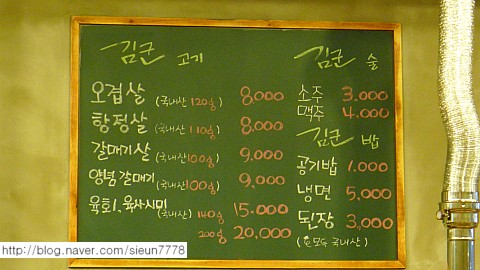 김군 고기
오겹살 (국내산 120g) 8,000
항정살 (국내산 110g) 8,000
갈매기살 (국내산 100g) 9,000
양념갈매기 (국내산 100g) 9,000
육회, 육사시미 (국내산) 140g 15.000
200g 20,000
김군 술
소주 3.000
맥주 4.000
김군 밥
공기밥 1.000
냉면 5,000
된장 3,000
국내산)
http://blog.naver.com/sieun7778